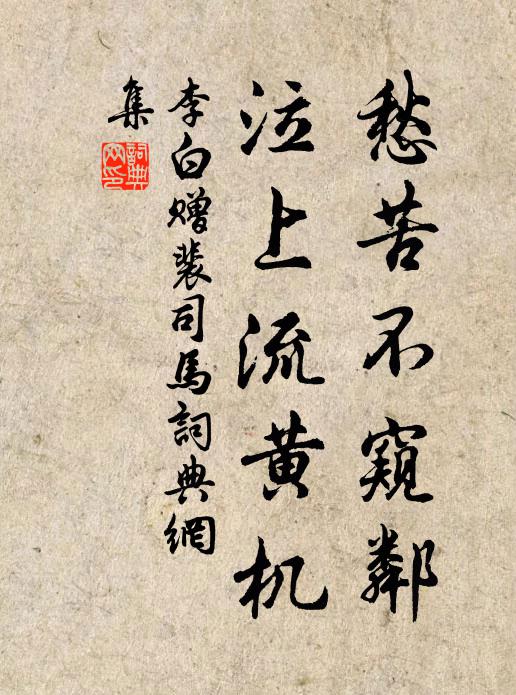 愁苦不窺鄰
泣上流黃机
李白贈裴司馬詞典網
集
詞典
网印